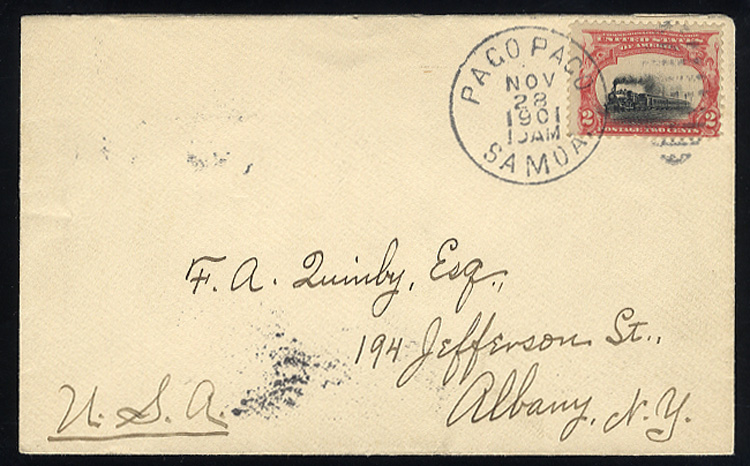 PAGO PAGO
NOV
28
1901
10AM
SAMOA
UNITED STATES
OF AMERICA
2 2
POSTAGE TWO CENTS
F. A. Quinby, Esq.,
194 Jefferson St.,
Albany, N.Y.
U. S. A.